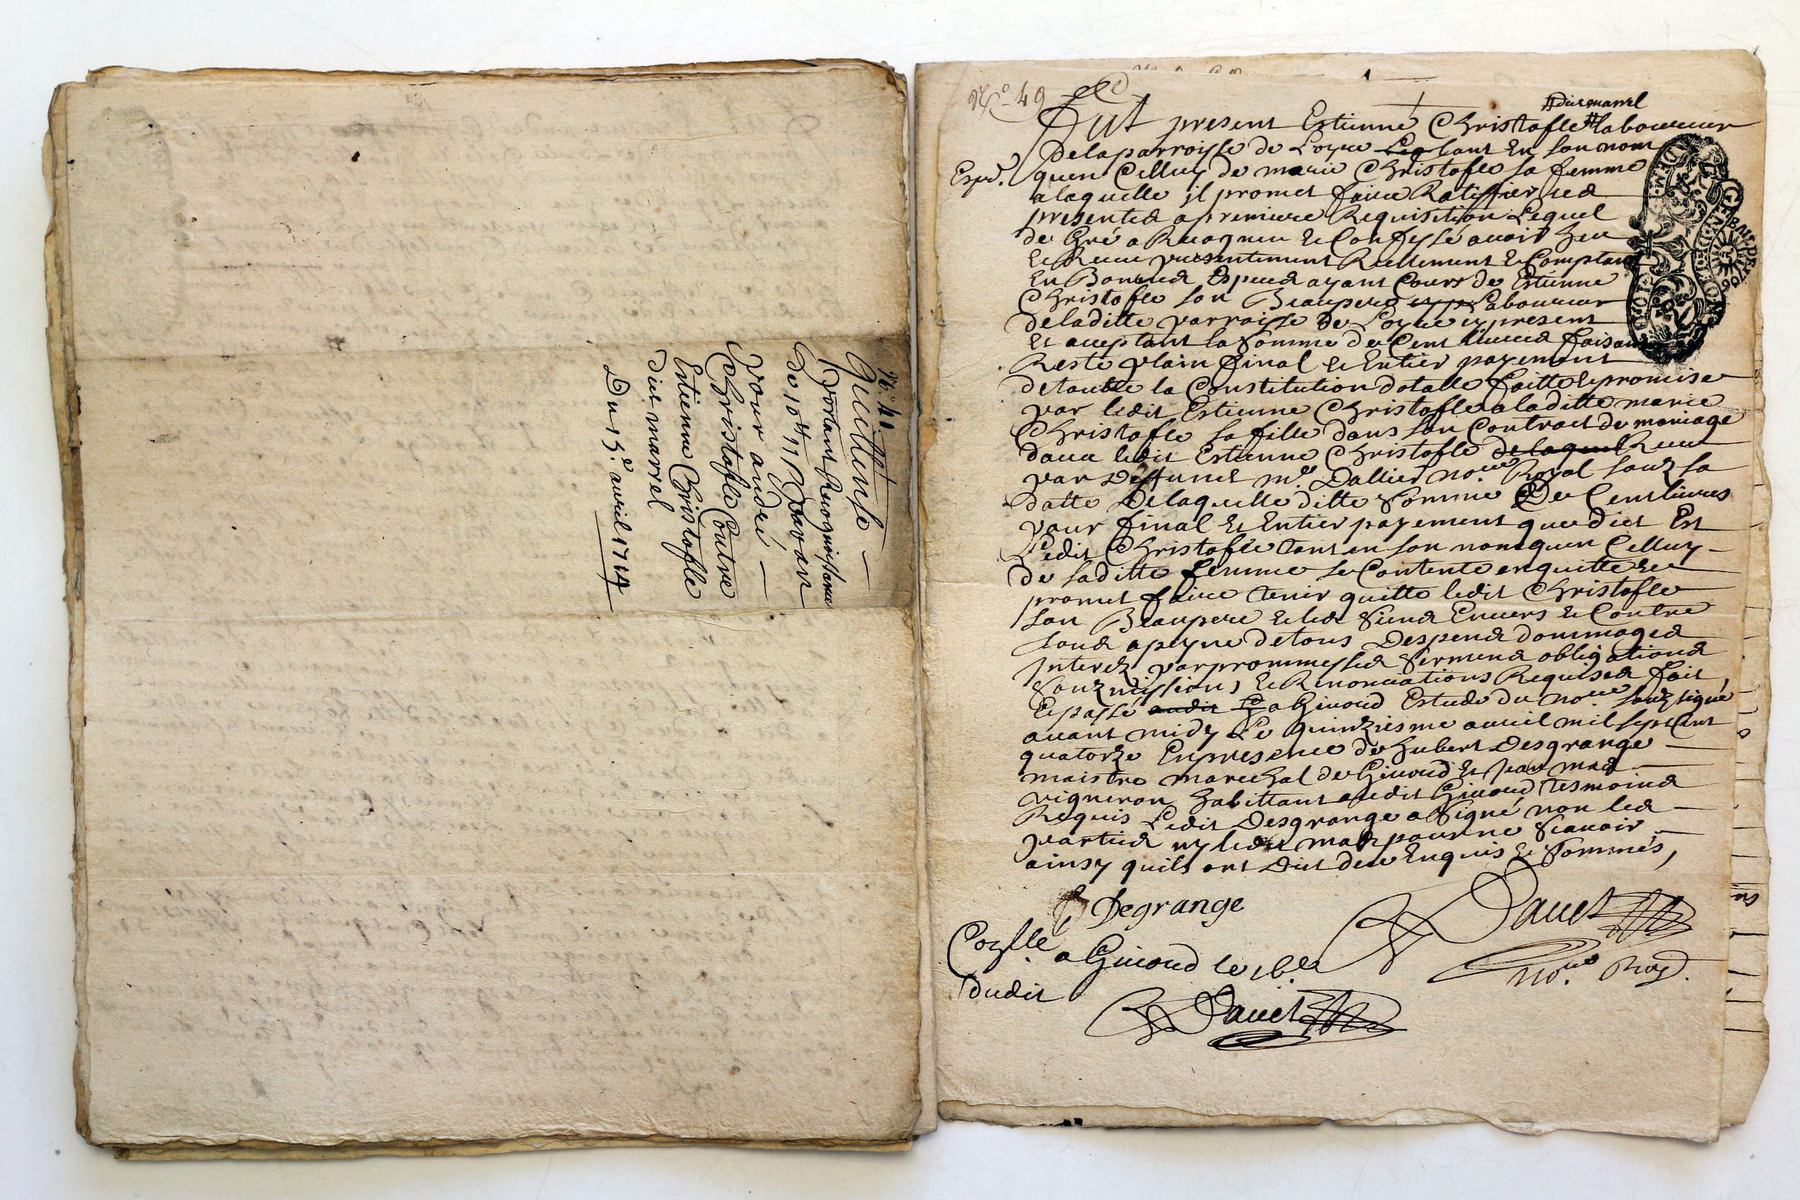 N.º 41
Quittense
portant Reconnoissance
de 10 ᵗᵗ 11 ſ
pour andré
Christofle Contre
Estienne Christofle
dict marrel
Du 15.ᵉ avril 1714
N.º 49
Expéd.
dict marrel
Fut present Estienne Christofle laboureur
de la parroisse de Loyse tant En son nom
quen Celluy de marie Christofle sa femme
a laquelle il promet faire Ratiffier ces
presentes a premiere Requisition Lequel
de Gré a Recognu et Confessé avoir heu
et Receu presentement Reellement et Comptant
En Bonnes Especes ayant Cours de Estienne
Christofle son Beaupere Laboureur
de laditte parroisse de Loyse present
et aceptant la Somme de Cent livres faisant
Reste plain final et Entier payement
de toutte la Constitution dotalle faitte et promise
par ledit Estienne Christofle a laditte marie
Christofle sa fille dans son Contrat de mariage
davec ledit Estienne Christofle de laquel Receu
par Deffunct mᵉ. Dallier noʳᵉ Royal souz sa
datte De laquelle ditte Somme De Cent livres
pour final et Entier payement que dict Est
Ledit Christofle tant en son nom quen Celluy
de saditte femme se Contente en quitte et
promet faire tenir quitte ledit Christofle
son Beaupere et les siens Envers et Contre
tous a peyne de tous Despens dommages
Interetz par prommesses serments obligations
souzmissions, et Renonciations Requises fait
et passé audit a Givord Estude du noʳᵉ souzsigné
avant midy Le quinziesme avril mil sept cent
quatorze En presence de hubert Desgrange
maistre marechal de Givord et Jean mas
vigneron habittant audit Givord tesmoins
Requis Ledit Desgrange a Signé non les
parties ny ledit mas pour ne scavoir
ainsy quils ont Dict de ce Enquis et Sommés,
h Degrange
Davet
noʳᵉ Roy.
a Givord le
dudit
Davet